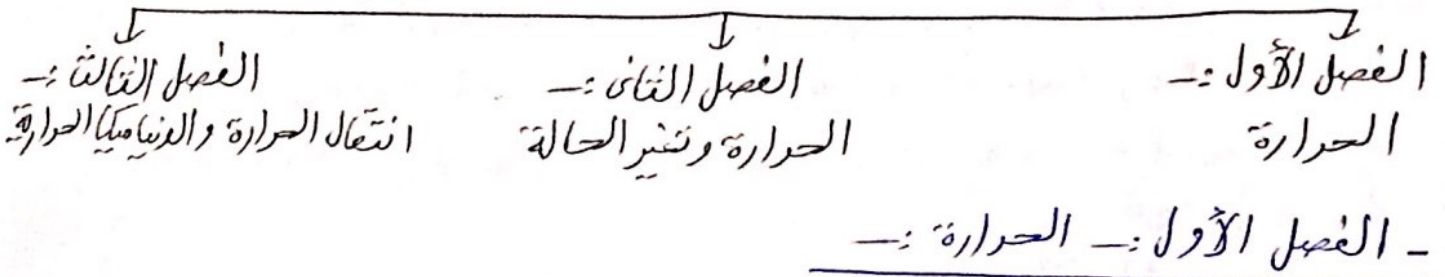 الفصل الأول :-
الحرارة
الفصل الثاني :-
الحرارة وتغير الحالة
الفصل الثالث :-
انتقال الحرارة والدنياميكيا الحرارية
- الفصل الأول :- الحرارة :-